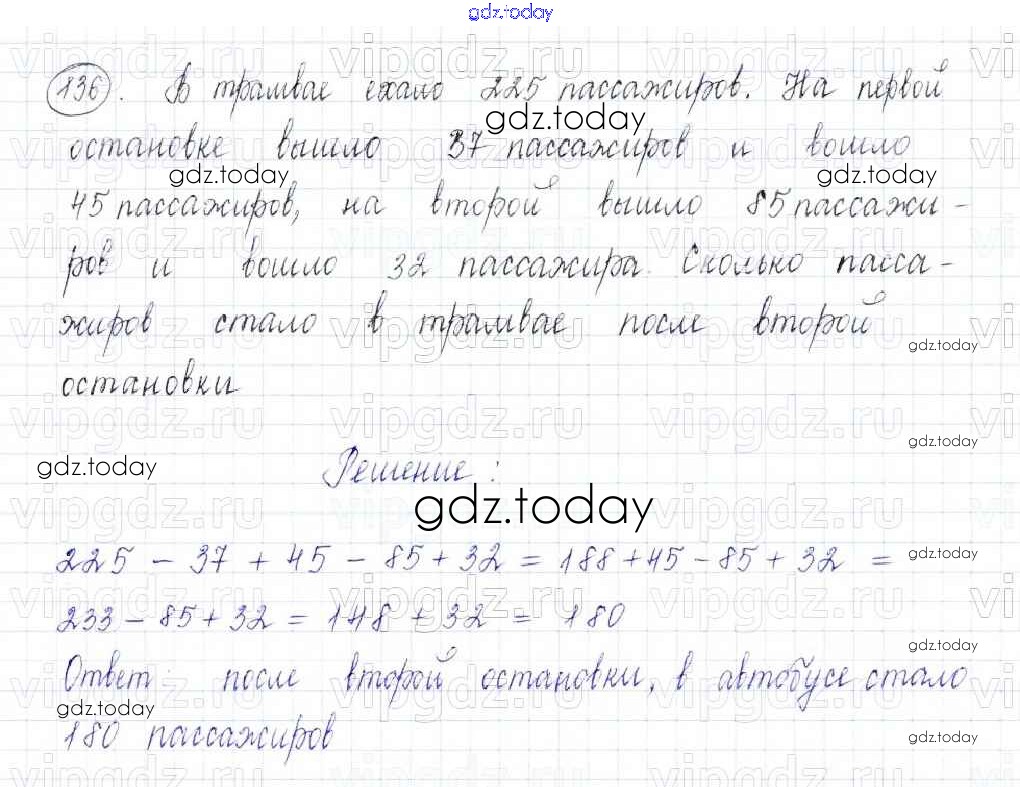 gdz.today
136. В трамвае ехало 225 пассажиров. На первой
gdz.today
остановке вышло 37 пассажиров и вошло
gdz.today gdz.today
45 пассажиров, на второй вышло 85 пассажи-
ров и вошло 32 пассажира. Сколько пасса-
жиров стало в трамвае после второй
gdz.today
остановки
gdz.today
gdz.today
Решение:
gdz.today
225 - 37 + 45 - 85 + 32 = 188 + 45 - 85 + 32 =
gdz.today
233 - 85 + 32 = 148 + 32 = 180
gdz.today
Ответ: после второй остановки, в автобусе стало
gdz.today
180 пассажиров
gdz.today
vipgdz.ru